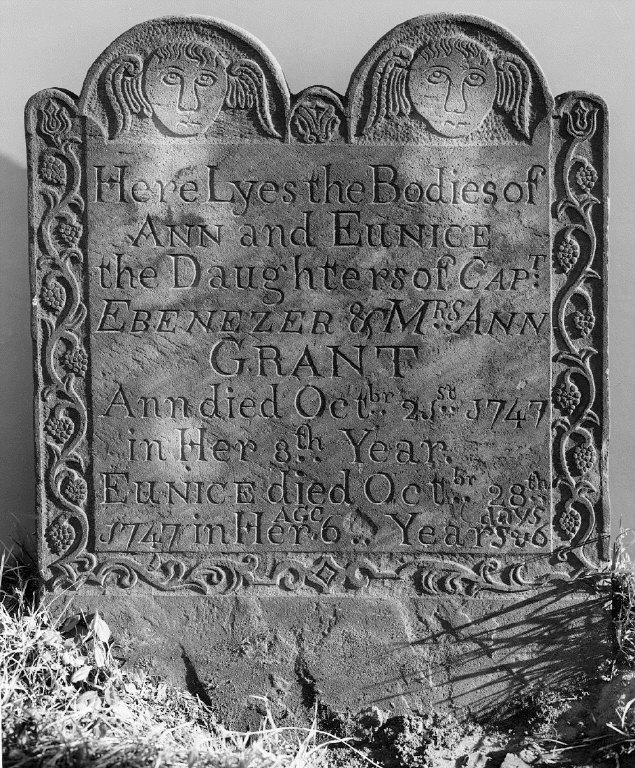 Here Lyes the Bodies of
ANN and EUNICE
the Daughters of CAPT.
EBENEZER & MRS. ANN
GRANT
Ann died Octbr. 21st. 1747
in Her 8th. Year.
EUNICE died Octbr. 28th.
1747 in Her AGE 6 Year & 6 days